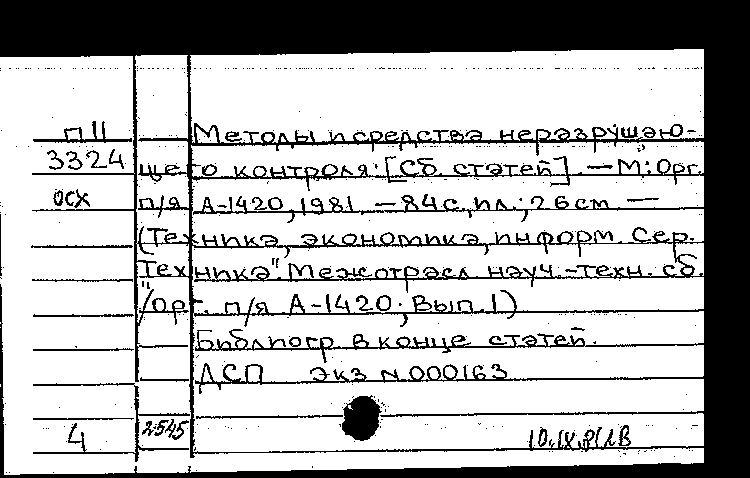 П 11 Методы и средства неразрушаю-
3324 щего контроля: [Сб. статей]. — М: Орг.
осх п/я А-1420, 1981. — 84 с, ил.; 26 см. —
(Техника, экономика, информ. Сер.
"Техника". Межотрасл науч.-техн. сб.
/Орг. п/я А-1420; Вып. 1)
Библиогр в конце статей.
ДСП Экз N 000163
4 2545 10.IX.81